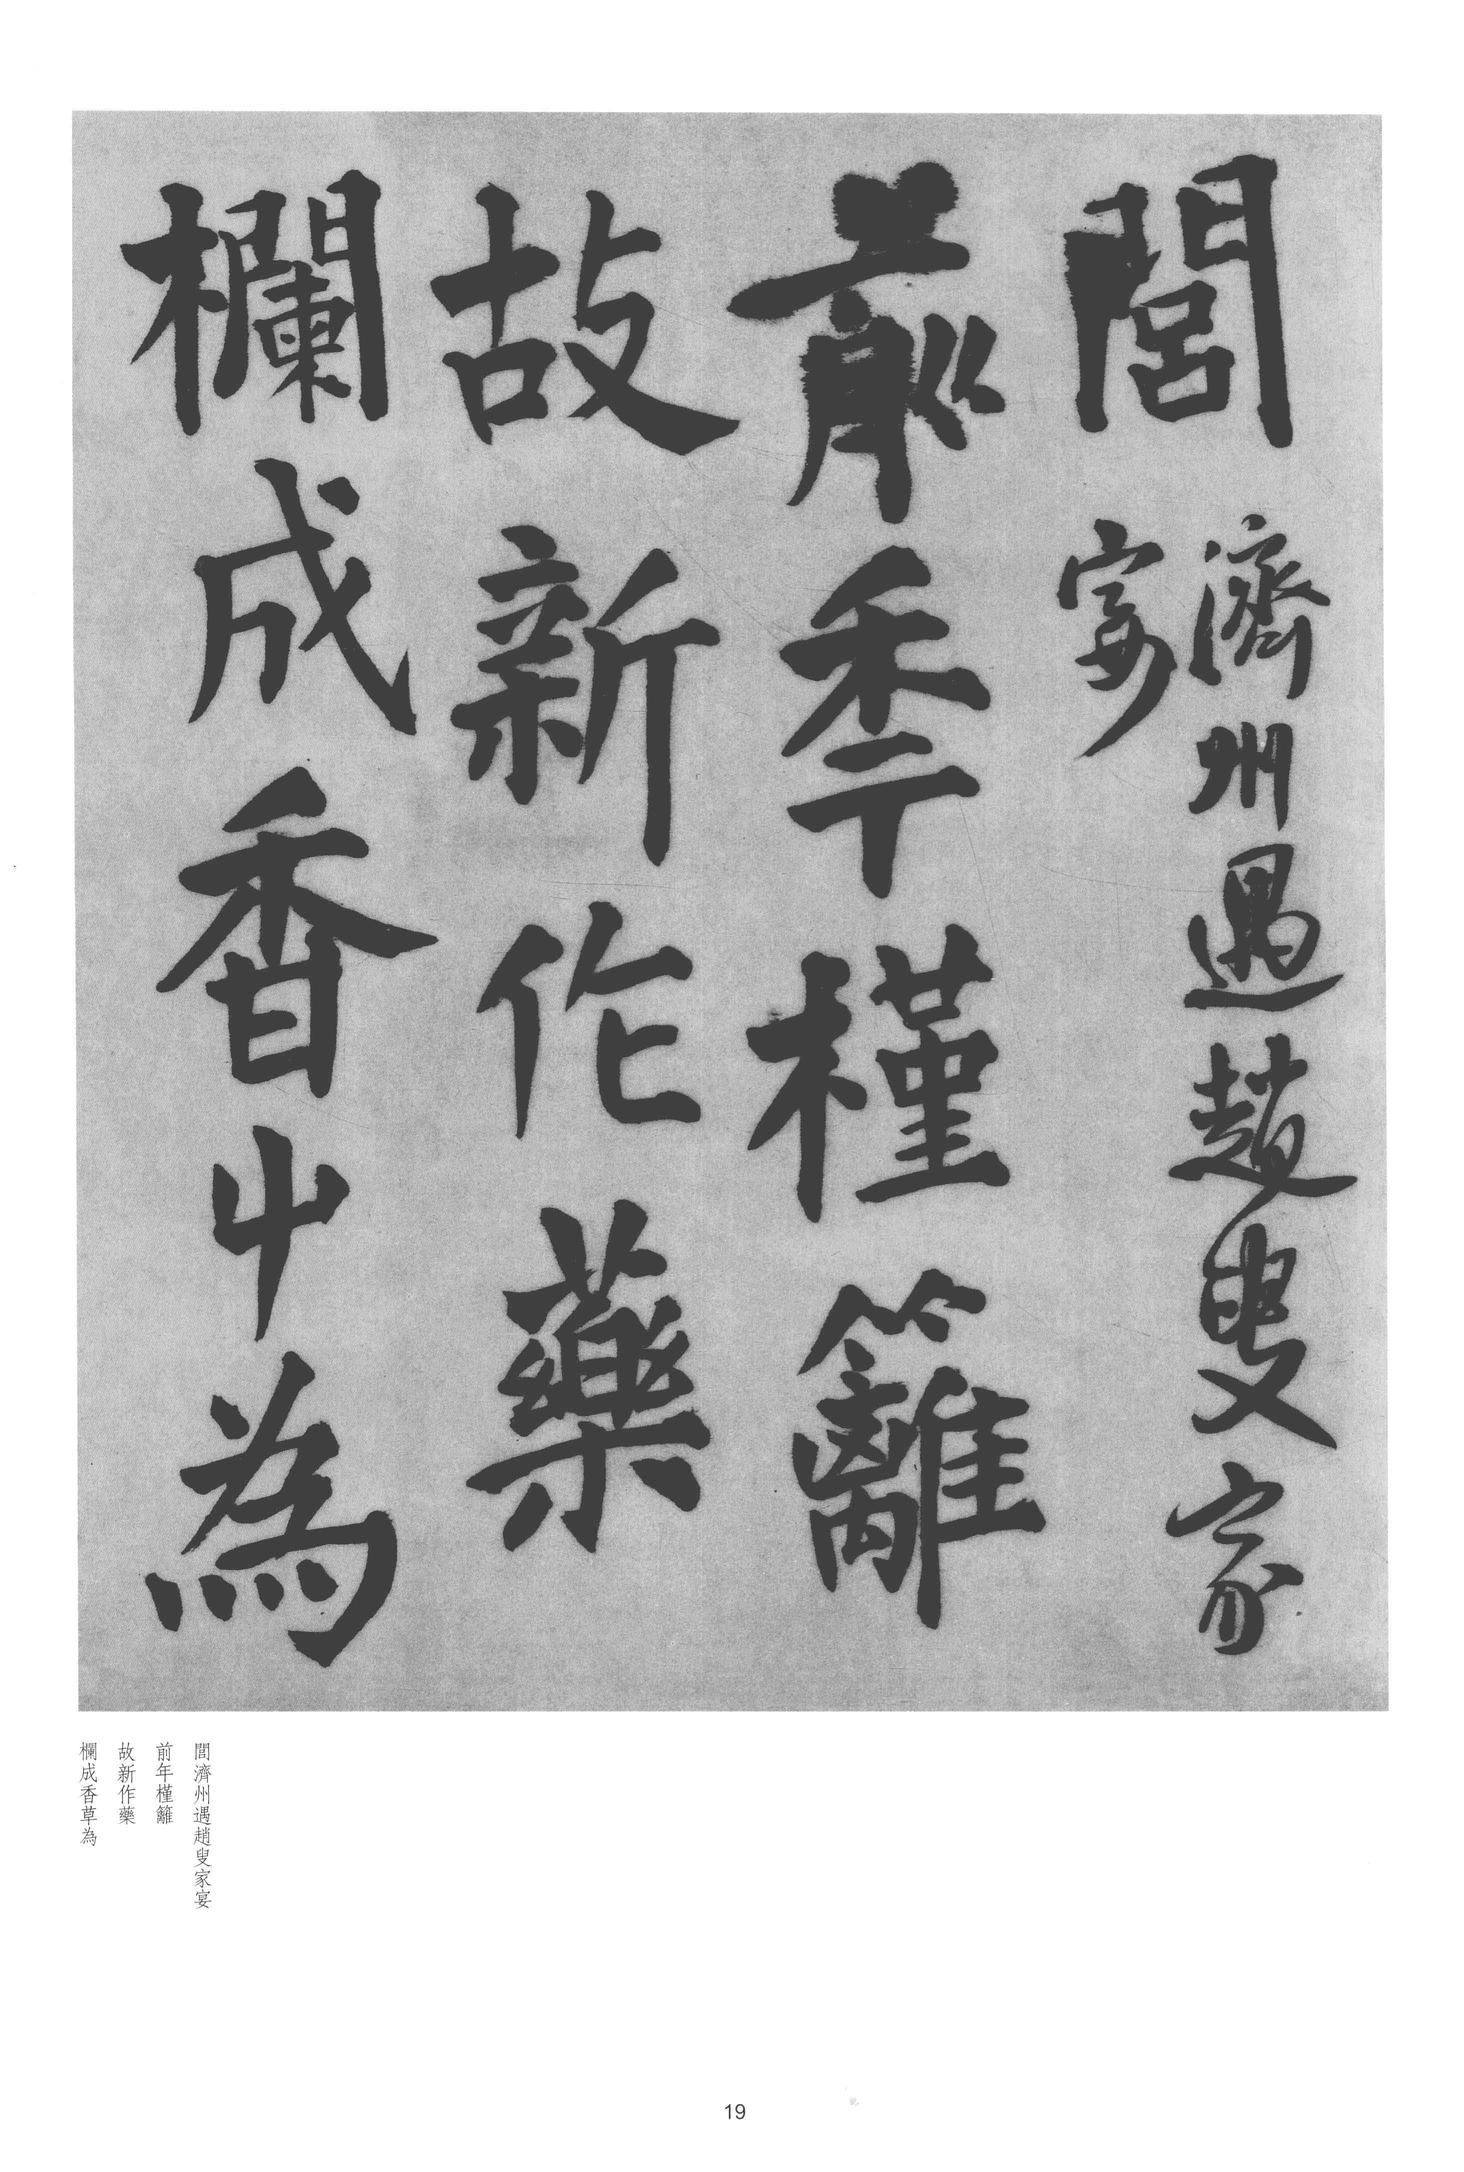 閭濟州遇趙叟家
宴
前年槿籬
故新作藥
欄成香草為
閭濟州遇趙叟家宴
前年槿籬
故新作藥
欄成香草為
19